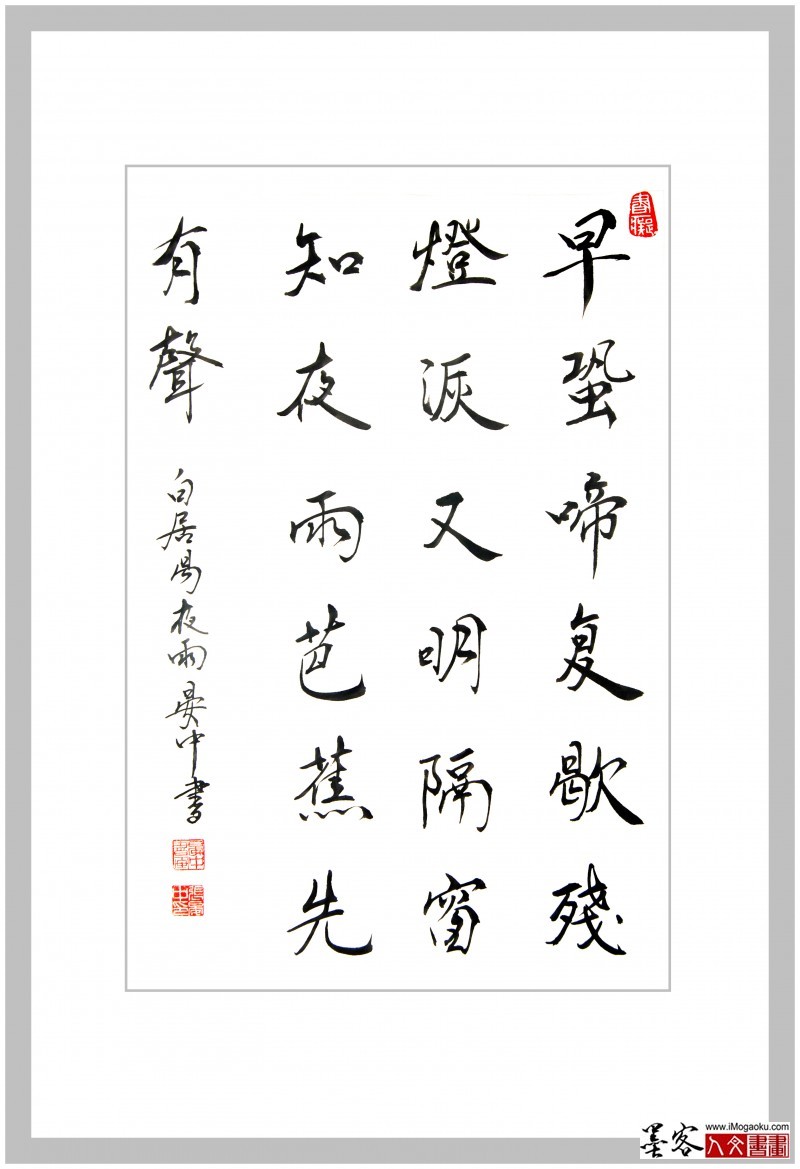 書癡
早蛩啼复歇殘
燈滅又明隔窗
知夜雨芭蕉先
有聲
白居易夜雨晏中書
墨客
www.iMogaoku.com
人文書畫